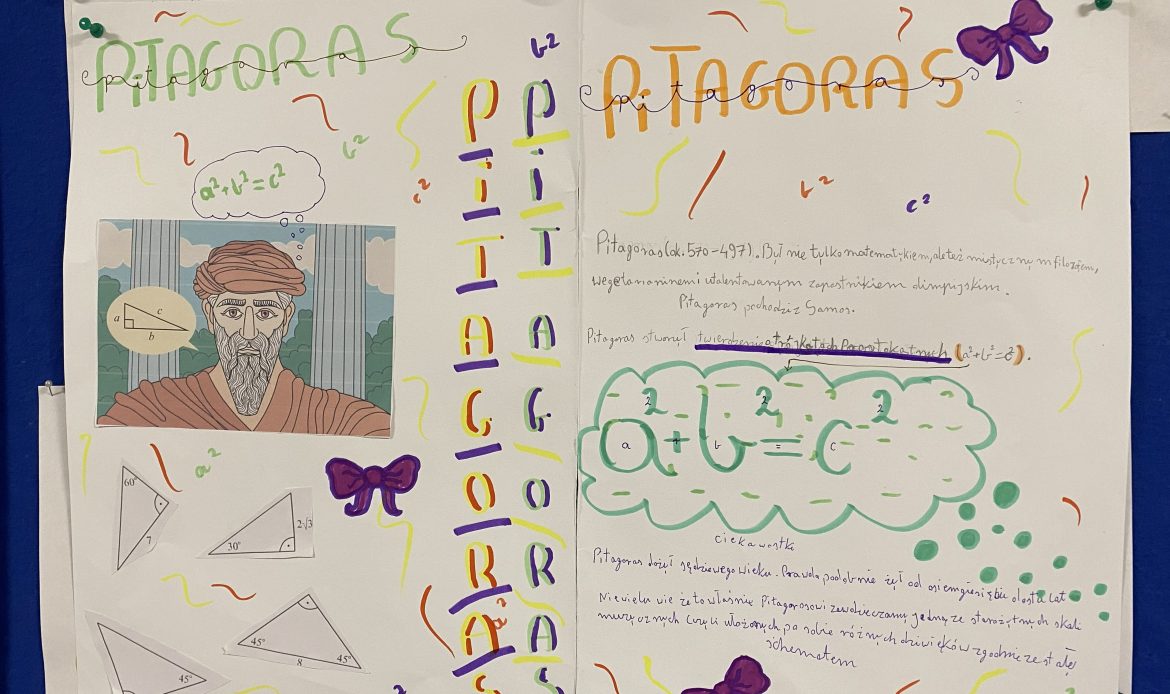 PITAGORAS
pitagoras
b²
PITAGORAS
pitagoras
P P
i i
T T
A A
G G
O O
R R
A A
S S
b²
c²
a²+b²=c²
b²
c²
a
c
b
a²
60°
7
30°
2√3
45°
8
45°
45°
a²
Pitagoras (ok. 570-497). Był nie tylko matematykiem, ale też mistycznym filozofem,
wegetarianinem i utalentowanym zapaśnikiem olimpijskim.
Pitagoras pochodzi z Samos.
Pitagoras stworzył twierdzenie o trójkątach prostokątnych (a²+b²=c²).
a²+b²=c²
ciekawostki
Pitagoras dożył sędziwego wieku. Prawdopodobnie żył od osiemdziesięciu do stu lat
Niewielu wie że to właśnie Pitagorosowi zawdzieczamy jedną ze starożytnych skali
muzycznych czyli ułożonych po sobie różnych dźwięków zgodnie ze stałej
schematem